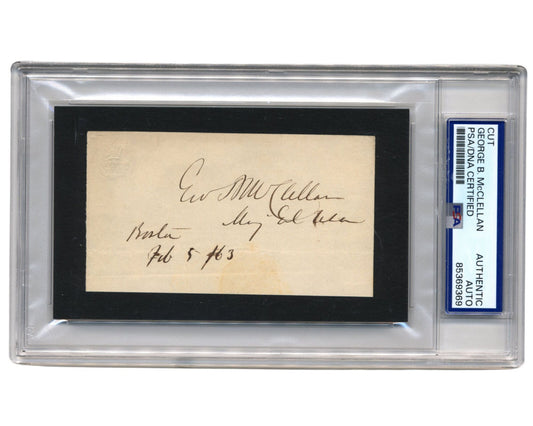 Geo B McClellan
Maj Genl USA
Boston
Feb 5 /63
CUT
GEORGE B. McCLELLAN
PSA/DNA CERTIFIED
PSA
AUTHENTIC
AUTO
85369369